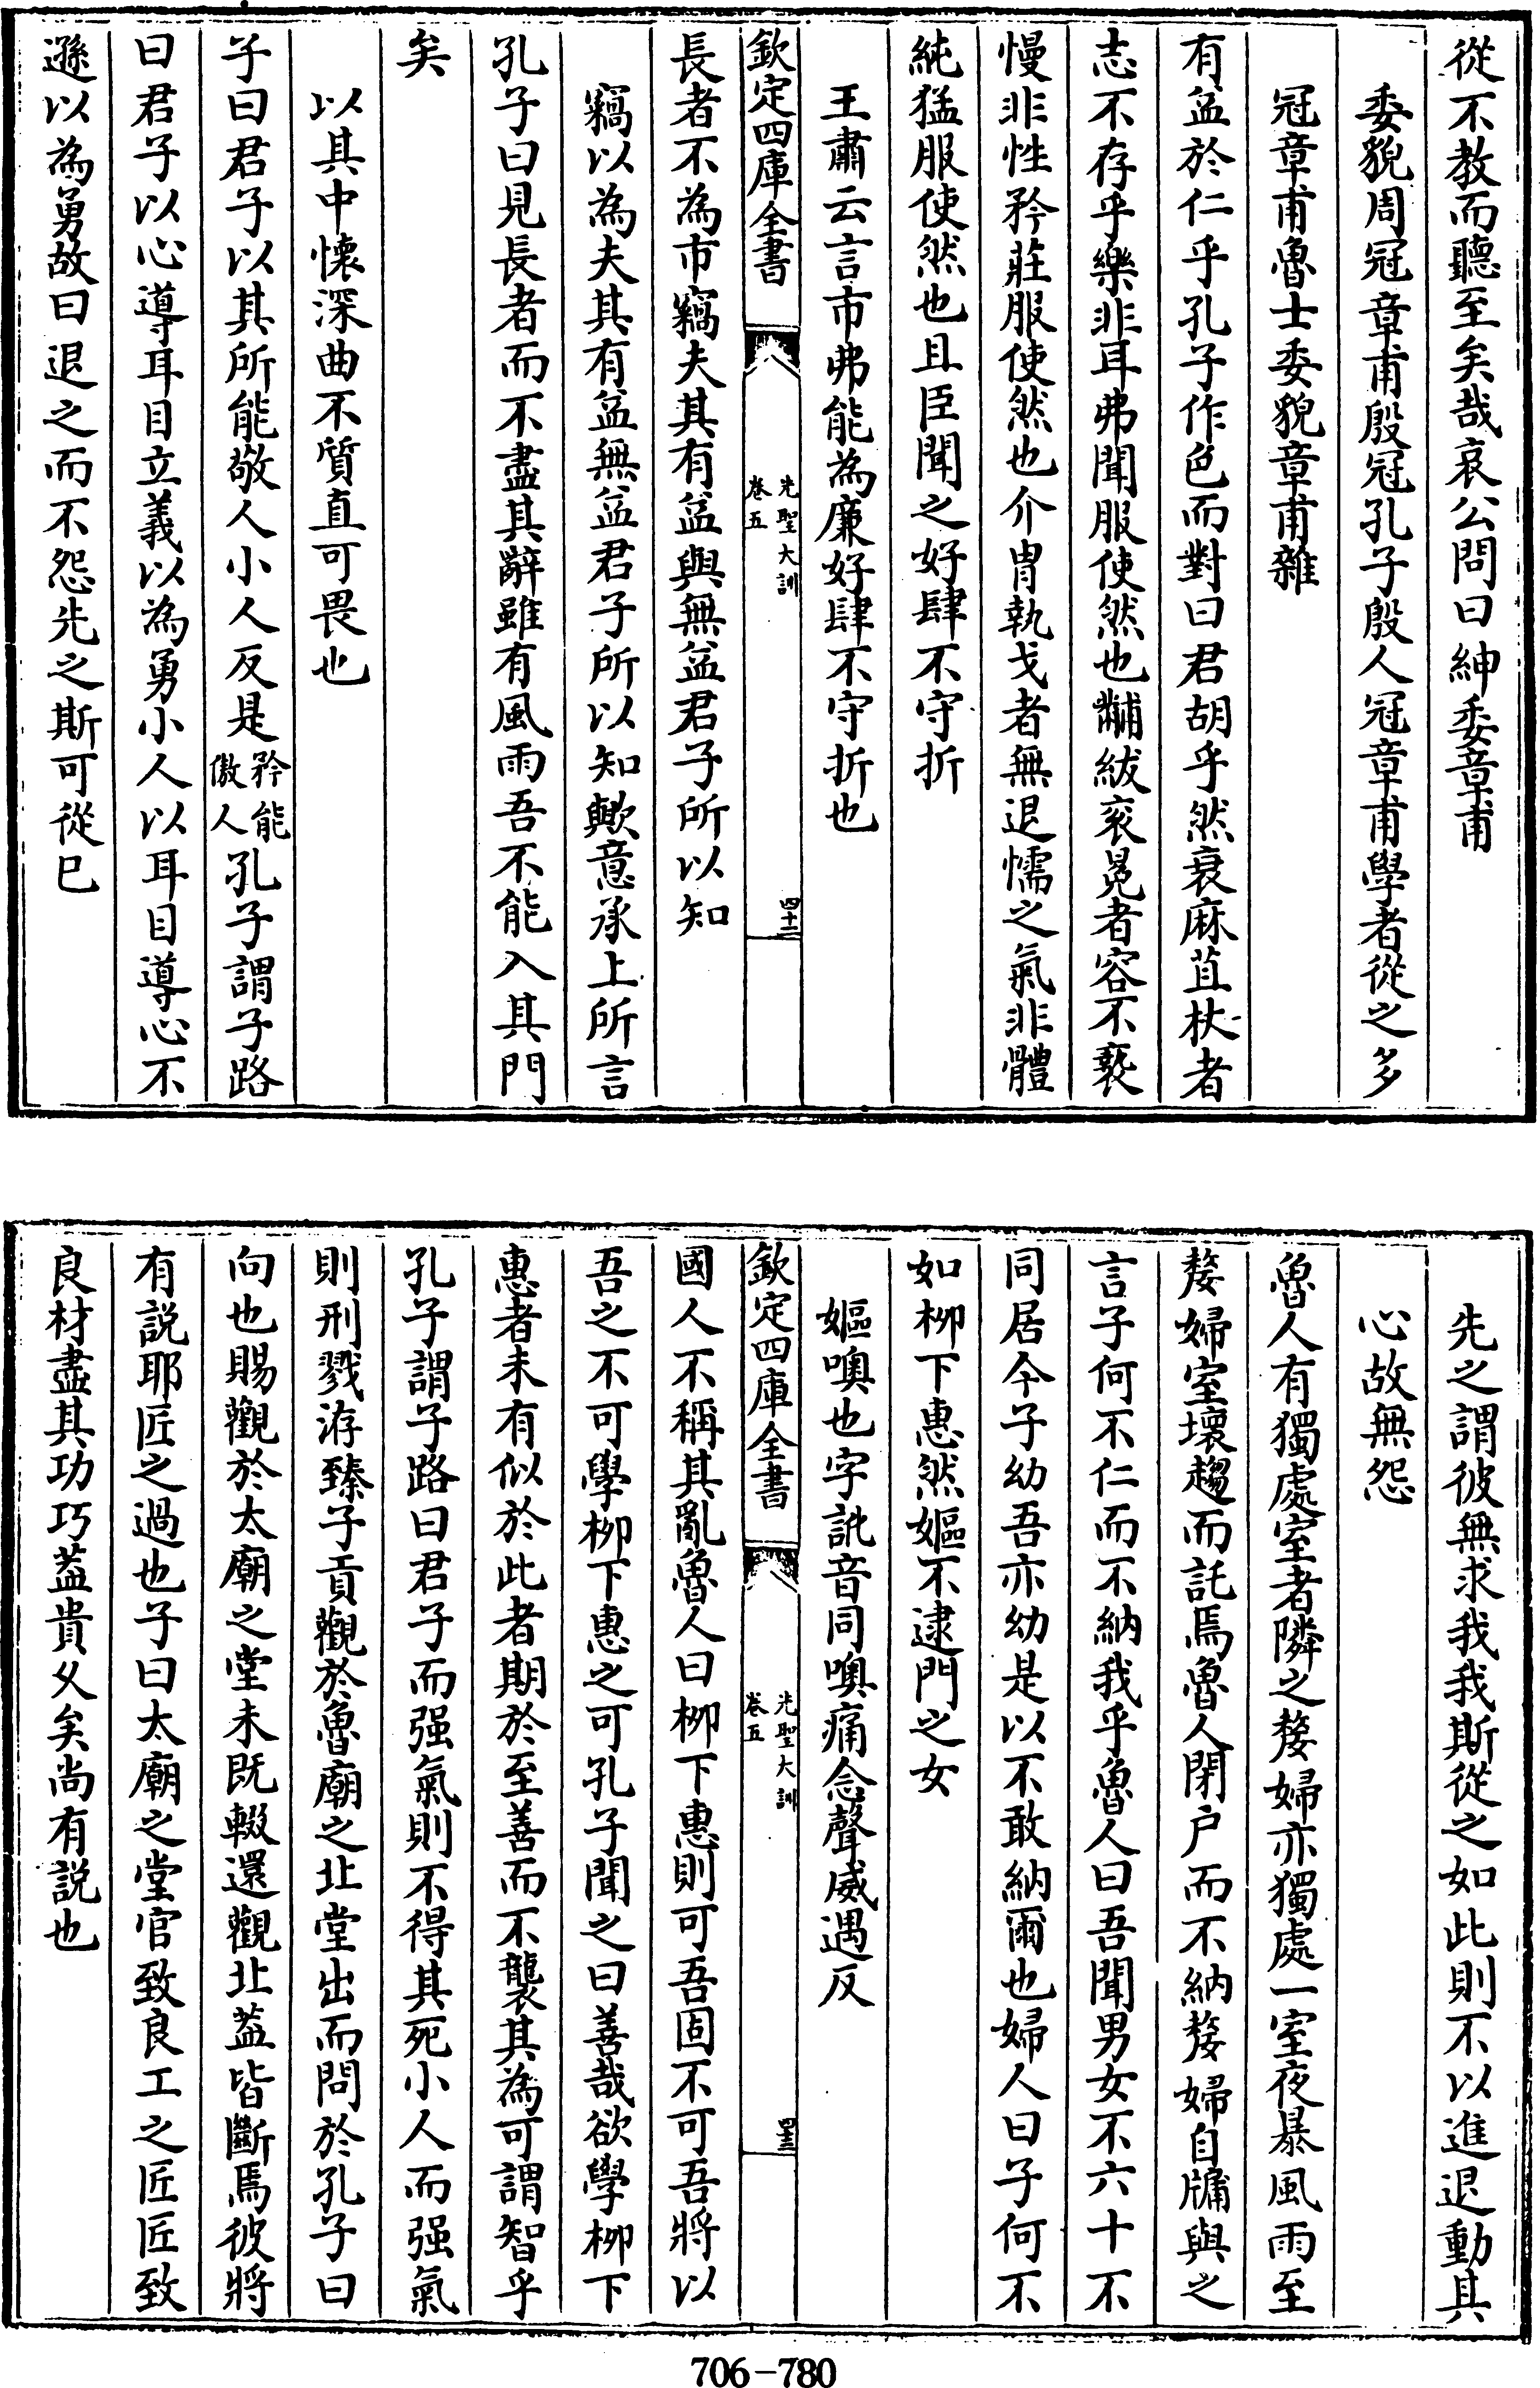 從不教而聽至矣哉哀公問曰紳委章甫
委貌周冠章甫殷冠孔子殷人冠章甫學者從之多
冠章甫魯士委貌章甫雜
有益於仁乎孔子作色而對曰君胡乎然衰麻苴杖者
志不存乎樂非耳弗聞服使然也黼紱衮冕者容不褻
慢非性矜莊服使然也介胄執戈者無退懦之氣非體
純猛服使然也且臣聞之好肆不守折
王肅云言市弗能為廉好肆不守折也
欽定四庫全書
先聖大訓
卷五
四十二
長者不為市竊夫其有益與無益君子所以知
竊以為夫其有益無益君子所以知歟意承上所言
孔子曰見長者而不盡其辭雖有風雨吾不能入其門
矣
以其中懷深曲不質直可畏也
子曰君子以其所能敬人小人反是矜能傲人孔子謂子路
曰君子以心導耳目立義以為勇小人以耳目導心不
遜以為勇故曰退之而不怨先之斯可從已
先之謂彼無求我我斯從之如此則不以進退動其
心故無怨
魯人有獨處室者隣之嫠婦亦獨處一室夜暴風雨至
嫠婦室壞趨而託焉魯人閉户而不納嫠婦自牖與之
言子何不仁而不納我乎魯人曰吾聞男女不六十不
同居今子幼吾亦幼是以不敢納爾也婦人曰子何不
如栁下惠然嫗不逮門之女
嫗噢也字訛音同噢痛念聲威遇反
欽定四庫全書
先聖大訓
卷五
四十三
國人不稱其亂魯人曰栁下惠則可吾固不可吾將以
吾之不可學栁下惠之可孔子聞之曰善哉欲學栁下
惠者未有似於此者期於至善而不襲其為可謂智乎
孔子謂子路曰君子而强氣則不得其死小人而强氣
則刑戮洊臻子貢觀於魯廟之北堂出而問於孔子曰
向也賜觀於太廟之堂未既輟還觀北葢皆斷焉彼將
有説耶匠之過也子曰太廟之堂官致良工之匠匠致
良材盡其功巧葢貴乆矣尚有説也
706-780